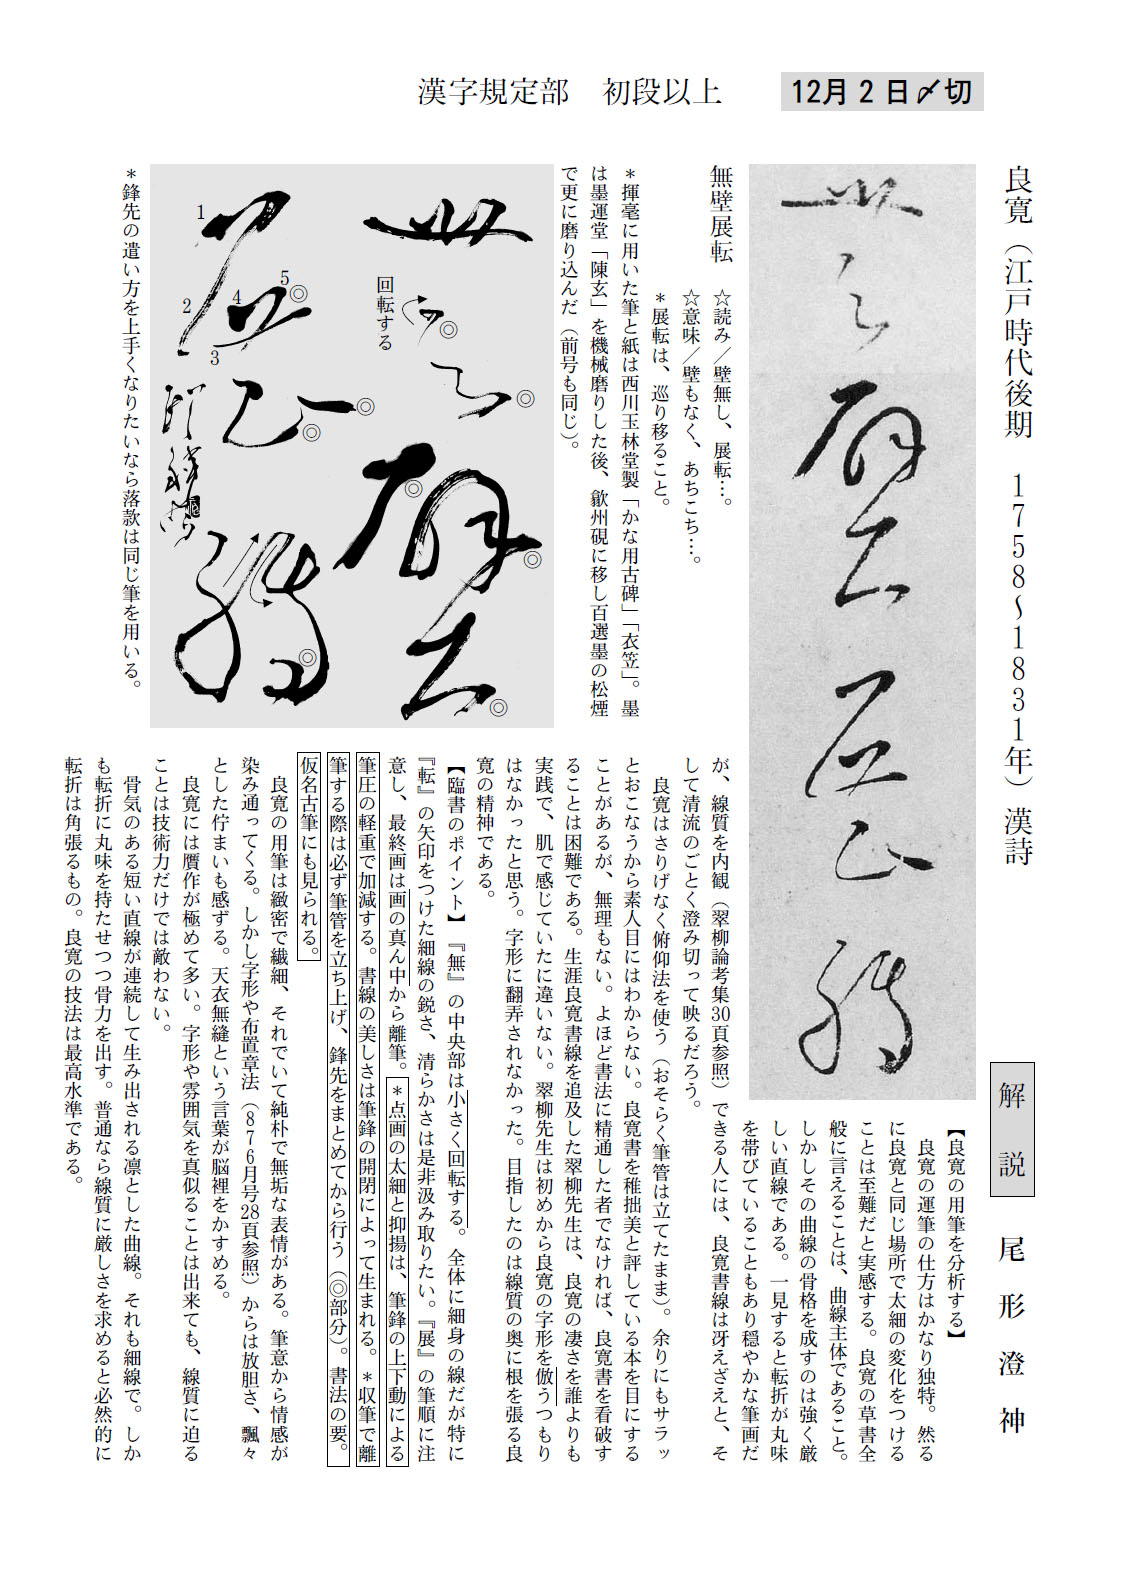 漢字規定部　初段以上
12月2日〆切
良寛（江戸時代後期　1758～1831年）漢詩
無壁展転
☆読み／壁無し、展転…。
☆意味／壁もなく、あちこち…。
＊展転は、巡り移ること。
＊揮毫に用いた筆と紙は西川玉林堂製「かな用古碑」「衣笠」。墨
は墨運堂「陳玄」を機械磨りした後、歙州硯に移し百選墨の松煙
で更に磨り込んだ（前号も同じ）。
回転する
1
2
3
4
5
◎
◎
◎
◎
◎
◎
◎
◎
◎
＊鋒先の遣い方を上手くなりたいなら落款は同じ筆を用いる。
解説
尾形澄神
【良寛の用筆を分析する】
良寛の運筆の仕方はかなり独特。然る
に良寛と同じ場所で太細の変化をつける
ことは至難だと実感する。良寛の草書全
般に言えることは、曲線主体であること。
しかしその曲線の骨格を成すのは強く厳
しい直線である。一見すると転折が丸味
を帯びていることもあり穏やかな筆画だ
が、線質を内観（翠柳論考集30頁参照）できる人には、良寛書線は冴えざえと、そ
して清流のごとく澄み切って映るだろう。
良寛はさりげなく俯仰法を使う（おそらく筆管は立てたまま）。余りにもサラッ
とおこなうから素人目にはわからない。良寛書を稚拙美と評している本を目にする
ことがあるが、無理もない。よほど書法に精通した者でなければ、良寛書を看破す
ることは困難である。生涯良寛書線を追及した翠柳先生は、良寛の凄さを誰よりも
実践で、肌で感じていたに違いない。翠柳先生は初めから良寛の字形を倣うつもり
はなかったと思う。字形に翻弄されなかった。目指したのは線質の奥に根を張る良
寛の精神である。
【臨書のポイント】『無』の中央部は小さく回転する。全体に細身の線だが特に
『転』の矢印をつけた細線の鋭さ、清らかさは是非汲み取りたい。『展』の筆順に注
意し、最終画は画の真ん中から離筆。＊点画の太細と抑揚は、筆鋒の上下動による
筆圧の軽重で加減する。書線の美しさは筆鋒の開閉によって生まれる。＊収筆で離
筆する際は必ず筆管を立ち上げ、鋒先をまとめてから行う（◎部分）。書法の要。
仮名古筆にも見られる。
良寛の用筆は緻密で繊細、それでいて純朴で無垢な表情がある。筆意から情感が
染み通ってくる。しかし字形や布置章法（876月号28頁参照）からは放胆さ、飄々
とした佇まいも感ずる。天衣無縫という言葉が脳裡をかすめる。
良寛には贋作が極めて多い。字形や雰囲気を真似ることは出来ても、線質に迫る
ことは技術力だけでは敵わない。
骨気のある短い直線が連続して生み出される凛とした曲線。それも細線で。しか
も転折に丸味を持たせつつ骨力を出す。普通なら線質に厳しさを求めると必然的に
転折は角張るもの。良寛の技法は最高水準である。